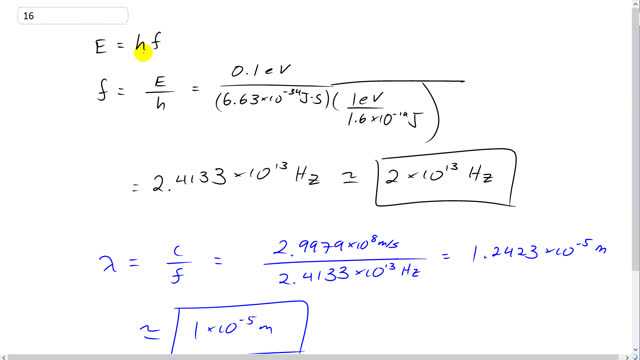 16
E = hf
f = E/h = 0.1eV / (6.63×10⁻³⁴J·S)(1eV / 1.6×10⁻¹⁹J)
= 2.4133×10¹³ Hz ≃ 2×10¹³ Hz
λ = c/f = 2.9979×10⁸ m/s / 2.4133×10¹³ Hz = 1.2423×10⁻⁵ m
≃ 1×10⁻⁵ m